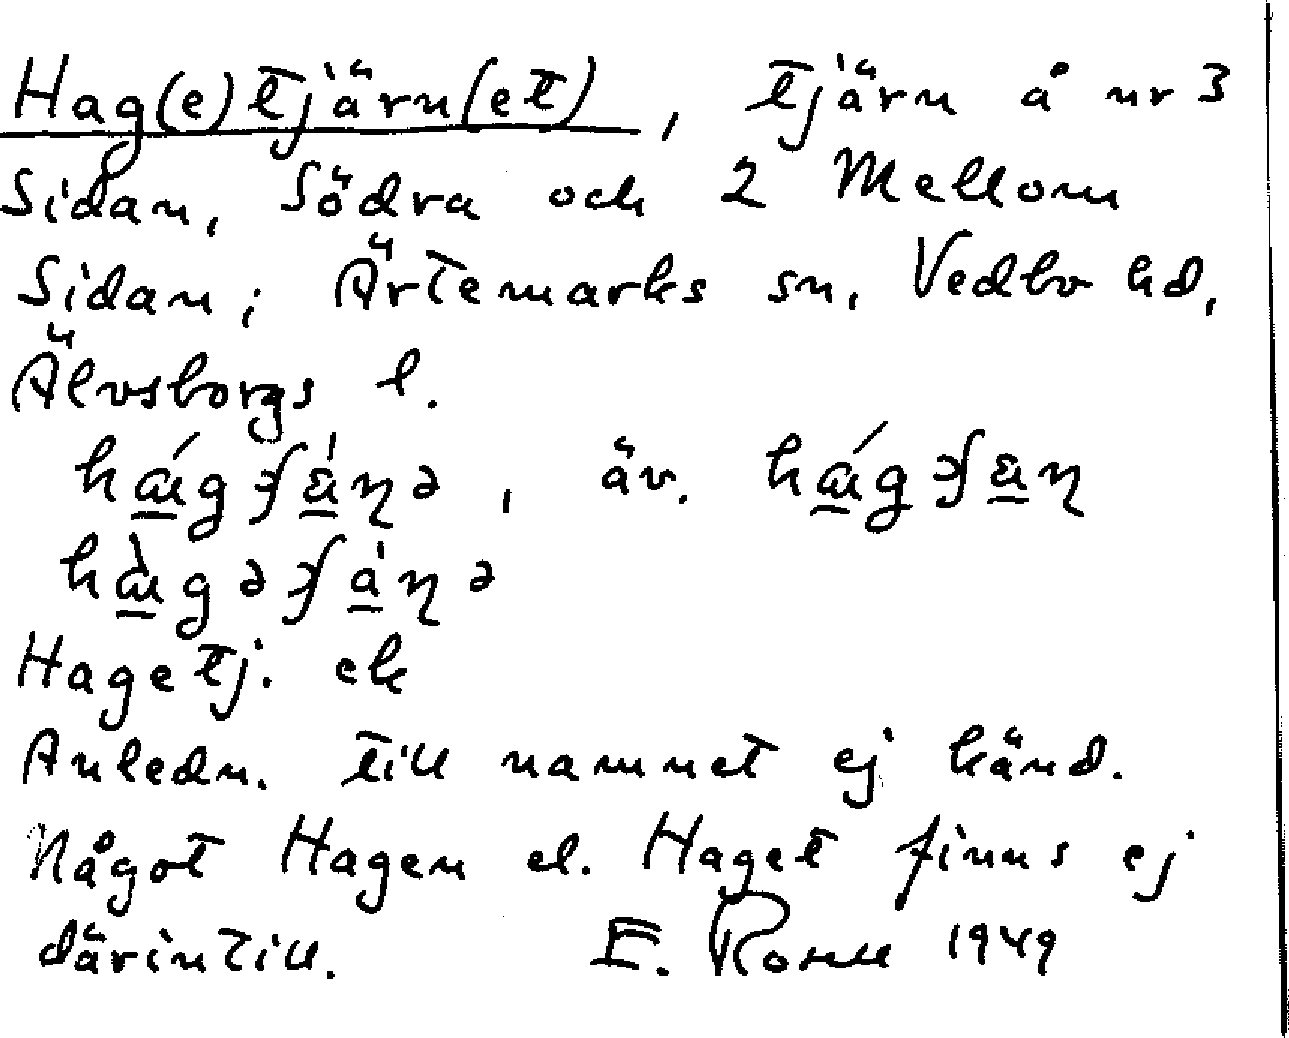 Hag(e)tjärn(et), tjärn å nr 3
Sidan, Södra och 2 Mellom
Sidan; Ärtemarks sn, Vedbo hd,
Älvsborgs l.
äv.
Hagetj. ek
Anledn. till namnet ej känd.
Något Hagen el. Haget finns ej
därintill. E. Rosell 1949